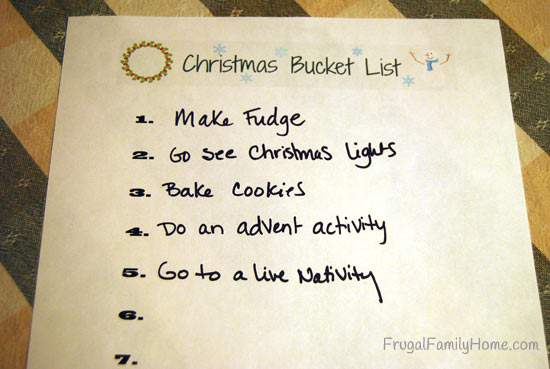 Christmas Bucket List
1. Make Fudge
2. Go see Christmas lights
3. Bake Cookies
4. Do an advent activity
5. Go to a live Nativity
6.
7.
FrugalFamilyHome.com